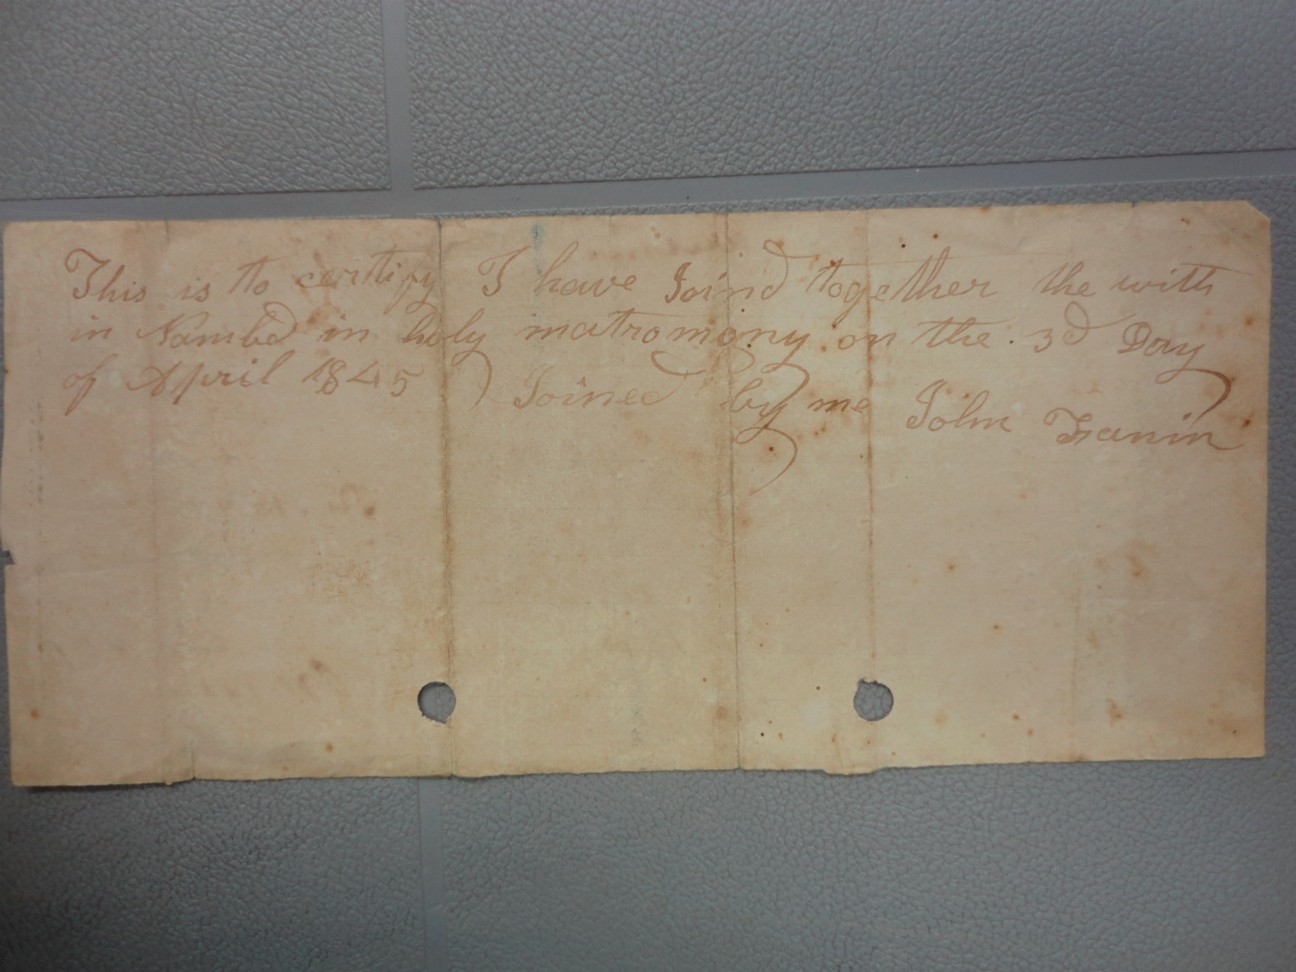 This is to certify I have Joind together the with
in Nambd in holy matromony on the 3d Day
of April 1845 Joined by me John